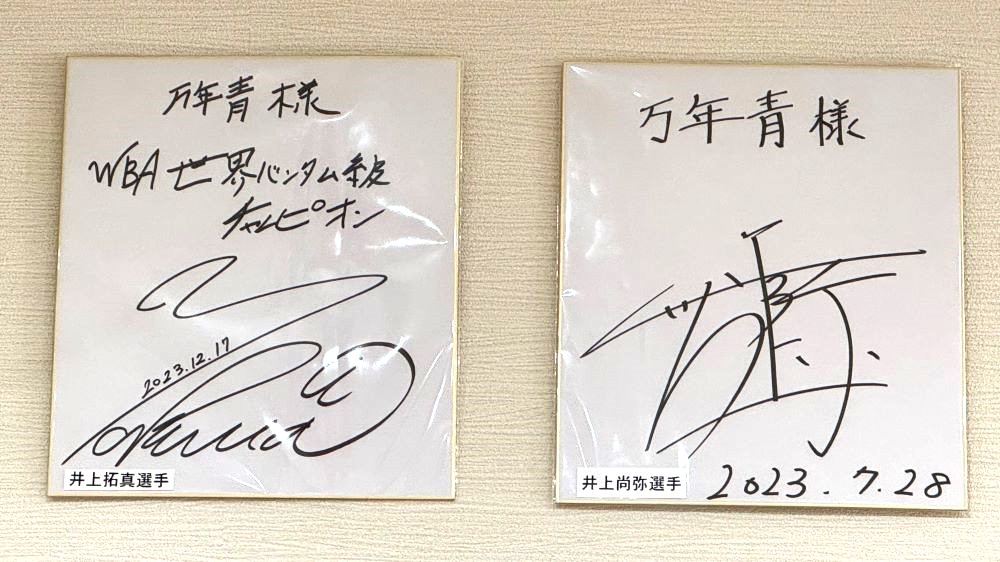 万年青様
WBA世界バンタム級
チャンピオン
2023.12.17
Takuma
井上拓真選手
万年青様
井上尚弥選手
2023.7.28